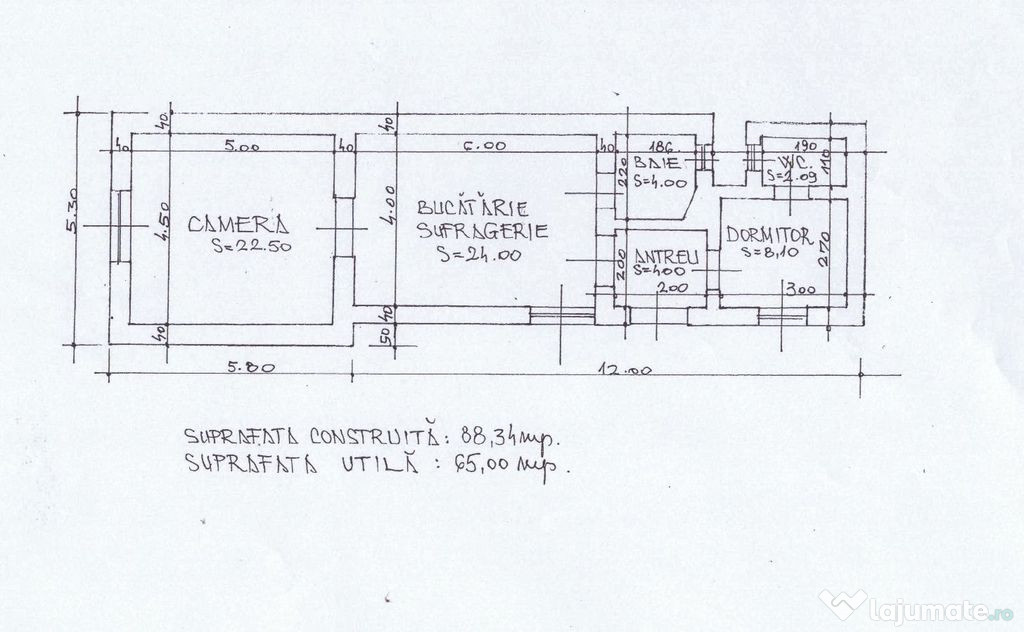 40
5.00
40
40
6.00
40
186
190
5.30
40
4.50
40
4.00
40
50
CAMERA
S=22.50
BUCĂTĂRIE
SUFRAGERIE
S=24.00
220
BAIE
S=4.00
WC.
S=2.09
110
200
ANTREU
S=400
200
DORMITOR
S=8,10
270
300
5.80
12.00
SUPRAFATA CONSTRUITĂ: 88,34 mp.
SUPRAFATA UTILĂ : 65,00 mp.
lajumate.ro